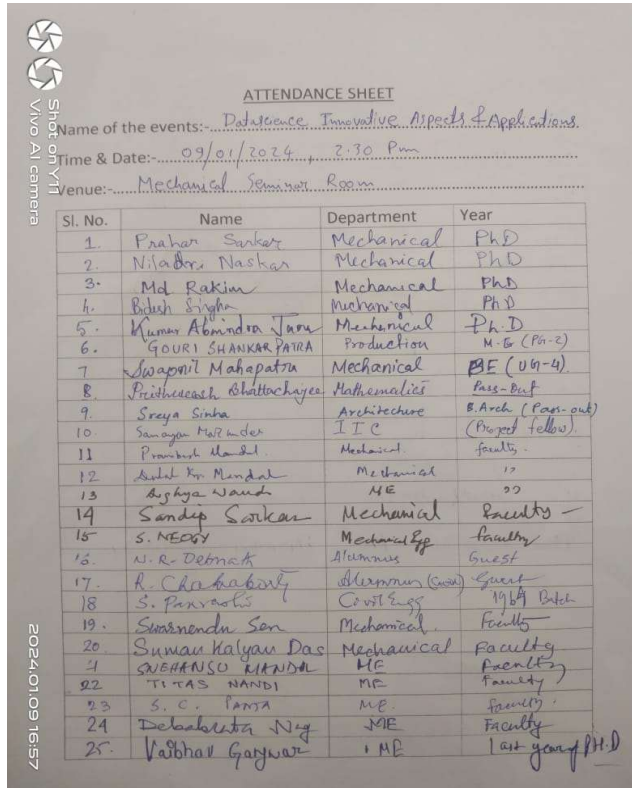 Shot on Y11
Vivo AI camera
ATTENDANCE SHEET
Name of the events:- Datascience Innovative Aspects & Applications.
Time & Date:- 09/01/2024, 2.30 Pm
Venue:- Mechanical Seminar Room
Sl. No. Name Department Year
1. Prahar Sarkar Mechanical PhD
2. Niladri Naskar Mechanical PhD
3. Md Rakim Mechanical PhD
4. Bidesh Singha Mechanical PhD
5. Kumar Mechanical Ph.D
6. GOURI SHANKAR PATRA Production M.E (PG-2)
7 Swapnil Mahapatra Mechanical BE (UG-4).
8. Bhattacharjee Mathematics Pass-Out
9. Sreya Sinha Architecture B.Arch (Pass-out)
10 IIC (Project fellow).
11 Mechanical. faculty.
12 Kr. Mandal Mechanical "
13 ME "
14 Sandip Sarkar Mechanical Faculty
15 S. NEOGY Mechanical Egg faculty
16. N. R. Debnath Alumnus Guest
17. R. Chakraborty Alumnus Guest
18 S. Civil Engg 1969 Batch
19. Swarnendu Sen Mechanical. Faculty
20 Suman Kalyan Das Mechanical Faculty
21 SNEHANSU MANDAL ME Faculty
22 TITAS NANDI ME Faculty
23 S. C. PANJA ME. faculty.
24 Debabrata Nag ME Faculty
25. Vaibhav Gangwar ME Last year of PH.D
2024.01.09 16:57